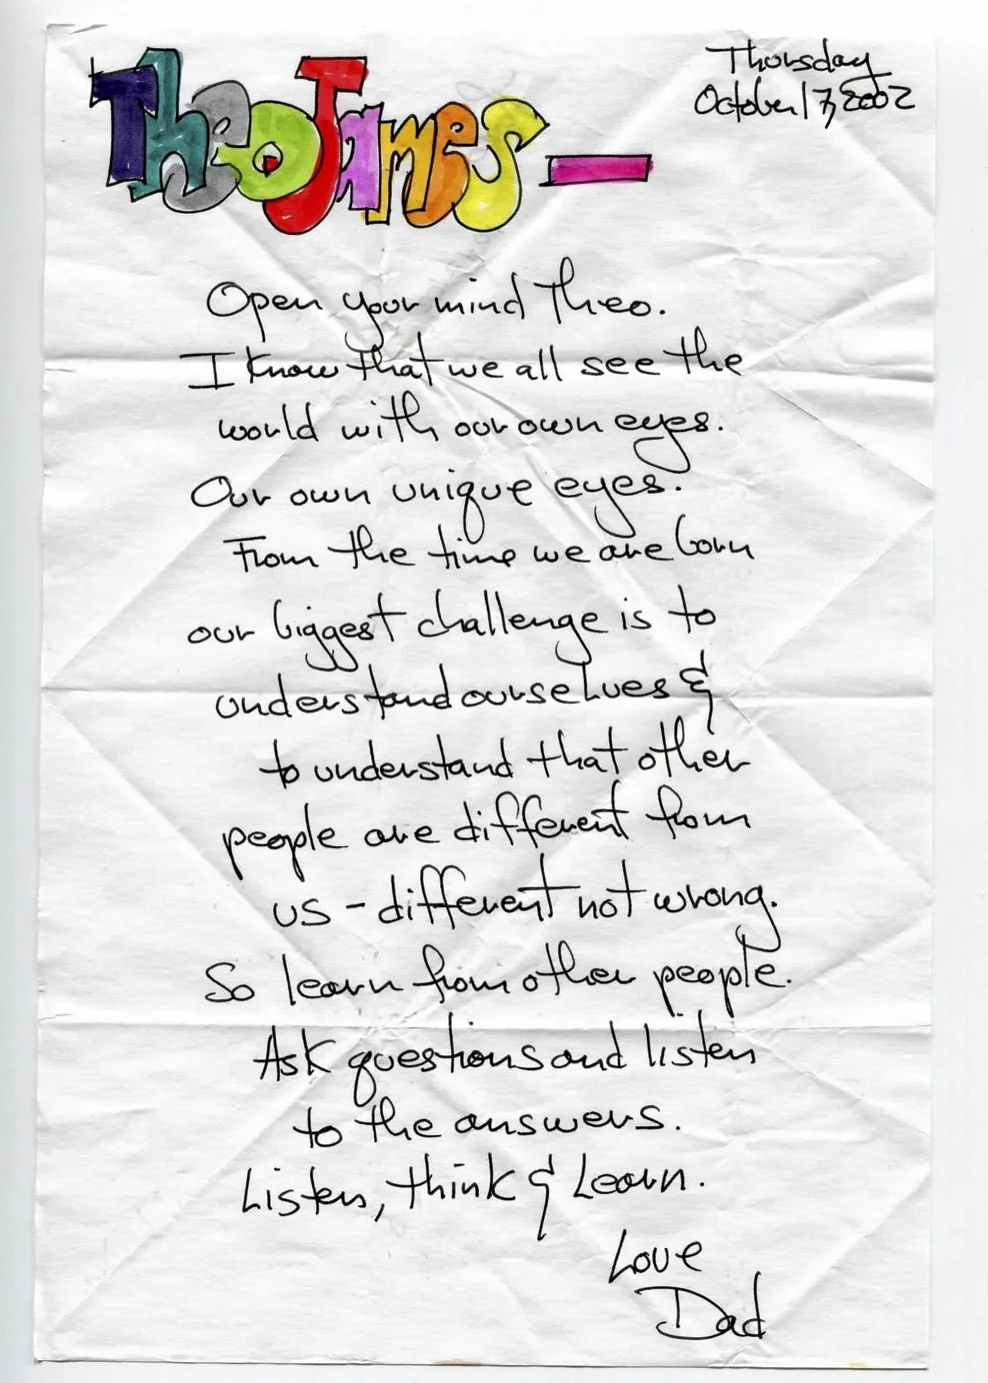 Thursday
October 17, 2002
Theo James —
Open your mind Theo.
I know that we all see the
world with our own eyes.
Our own unique eyes.
From the time we are born
our biggest challenge is to
understand ourselves &
to understand that other
people are different from
us - different not wrong.
So learn from other people.
Ask questions and listen
to the answers.
Listen, think & Learn.
Love
Dad